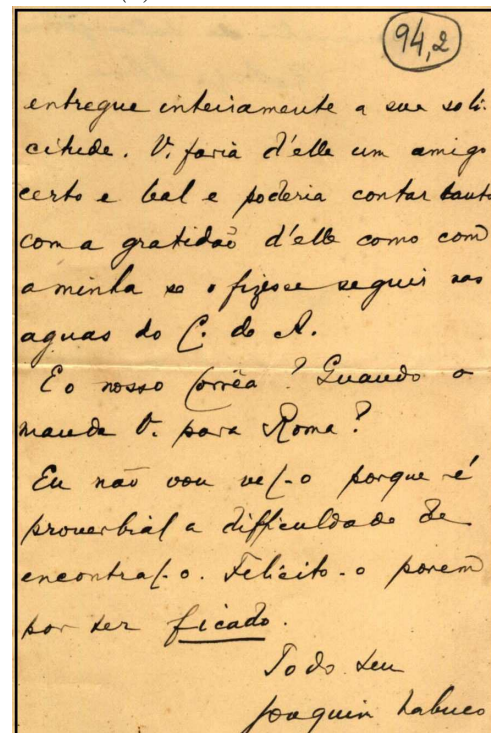 94,2
entregue inteiramente a sua soli-
citude. V. faria d'elle um amigo
certo e leal e poderia contar tanto
com a gratidão d'elle como com
a minha se o fizesse seguir nas
aguas do C. do A.
E o nosso Corrêa? Quando o
manda V. para Roma?
Eu não vou vel-o porque é
proverbial a difficuldade de
encontral-o. Felicito-o porem
por ter ficado.
Todo seu
Joaquim Nabuco